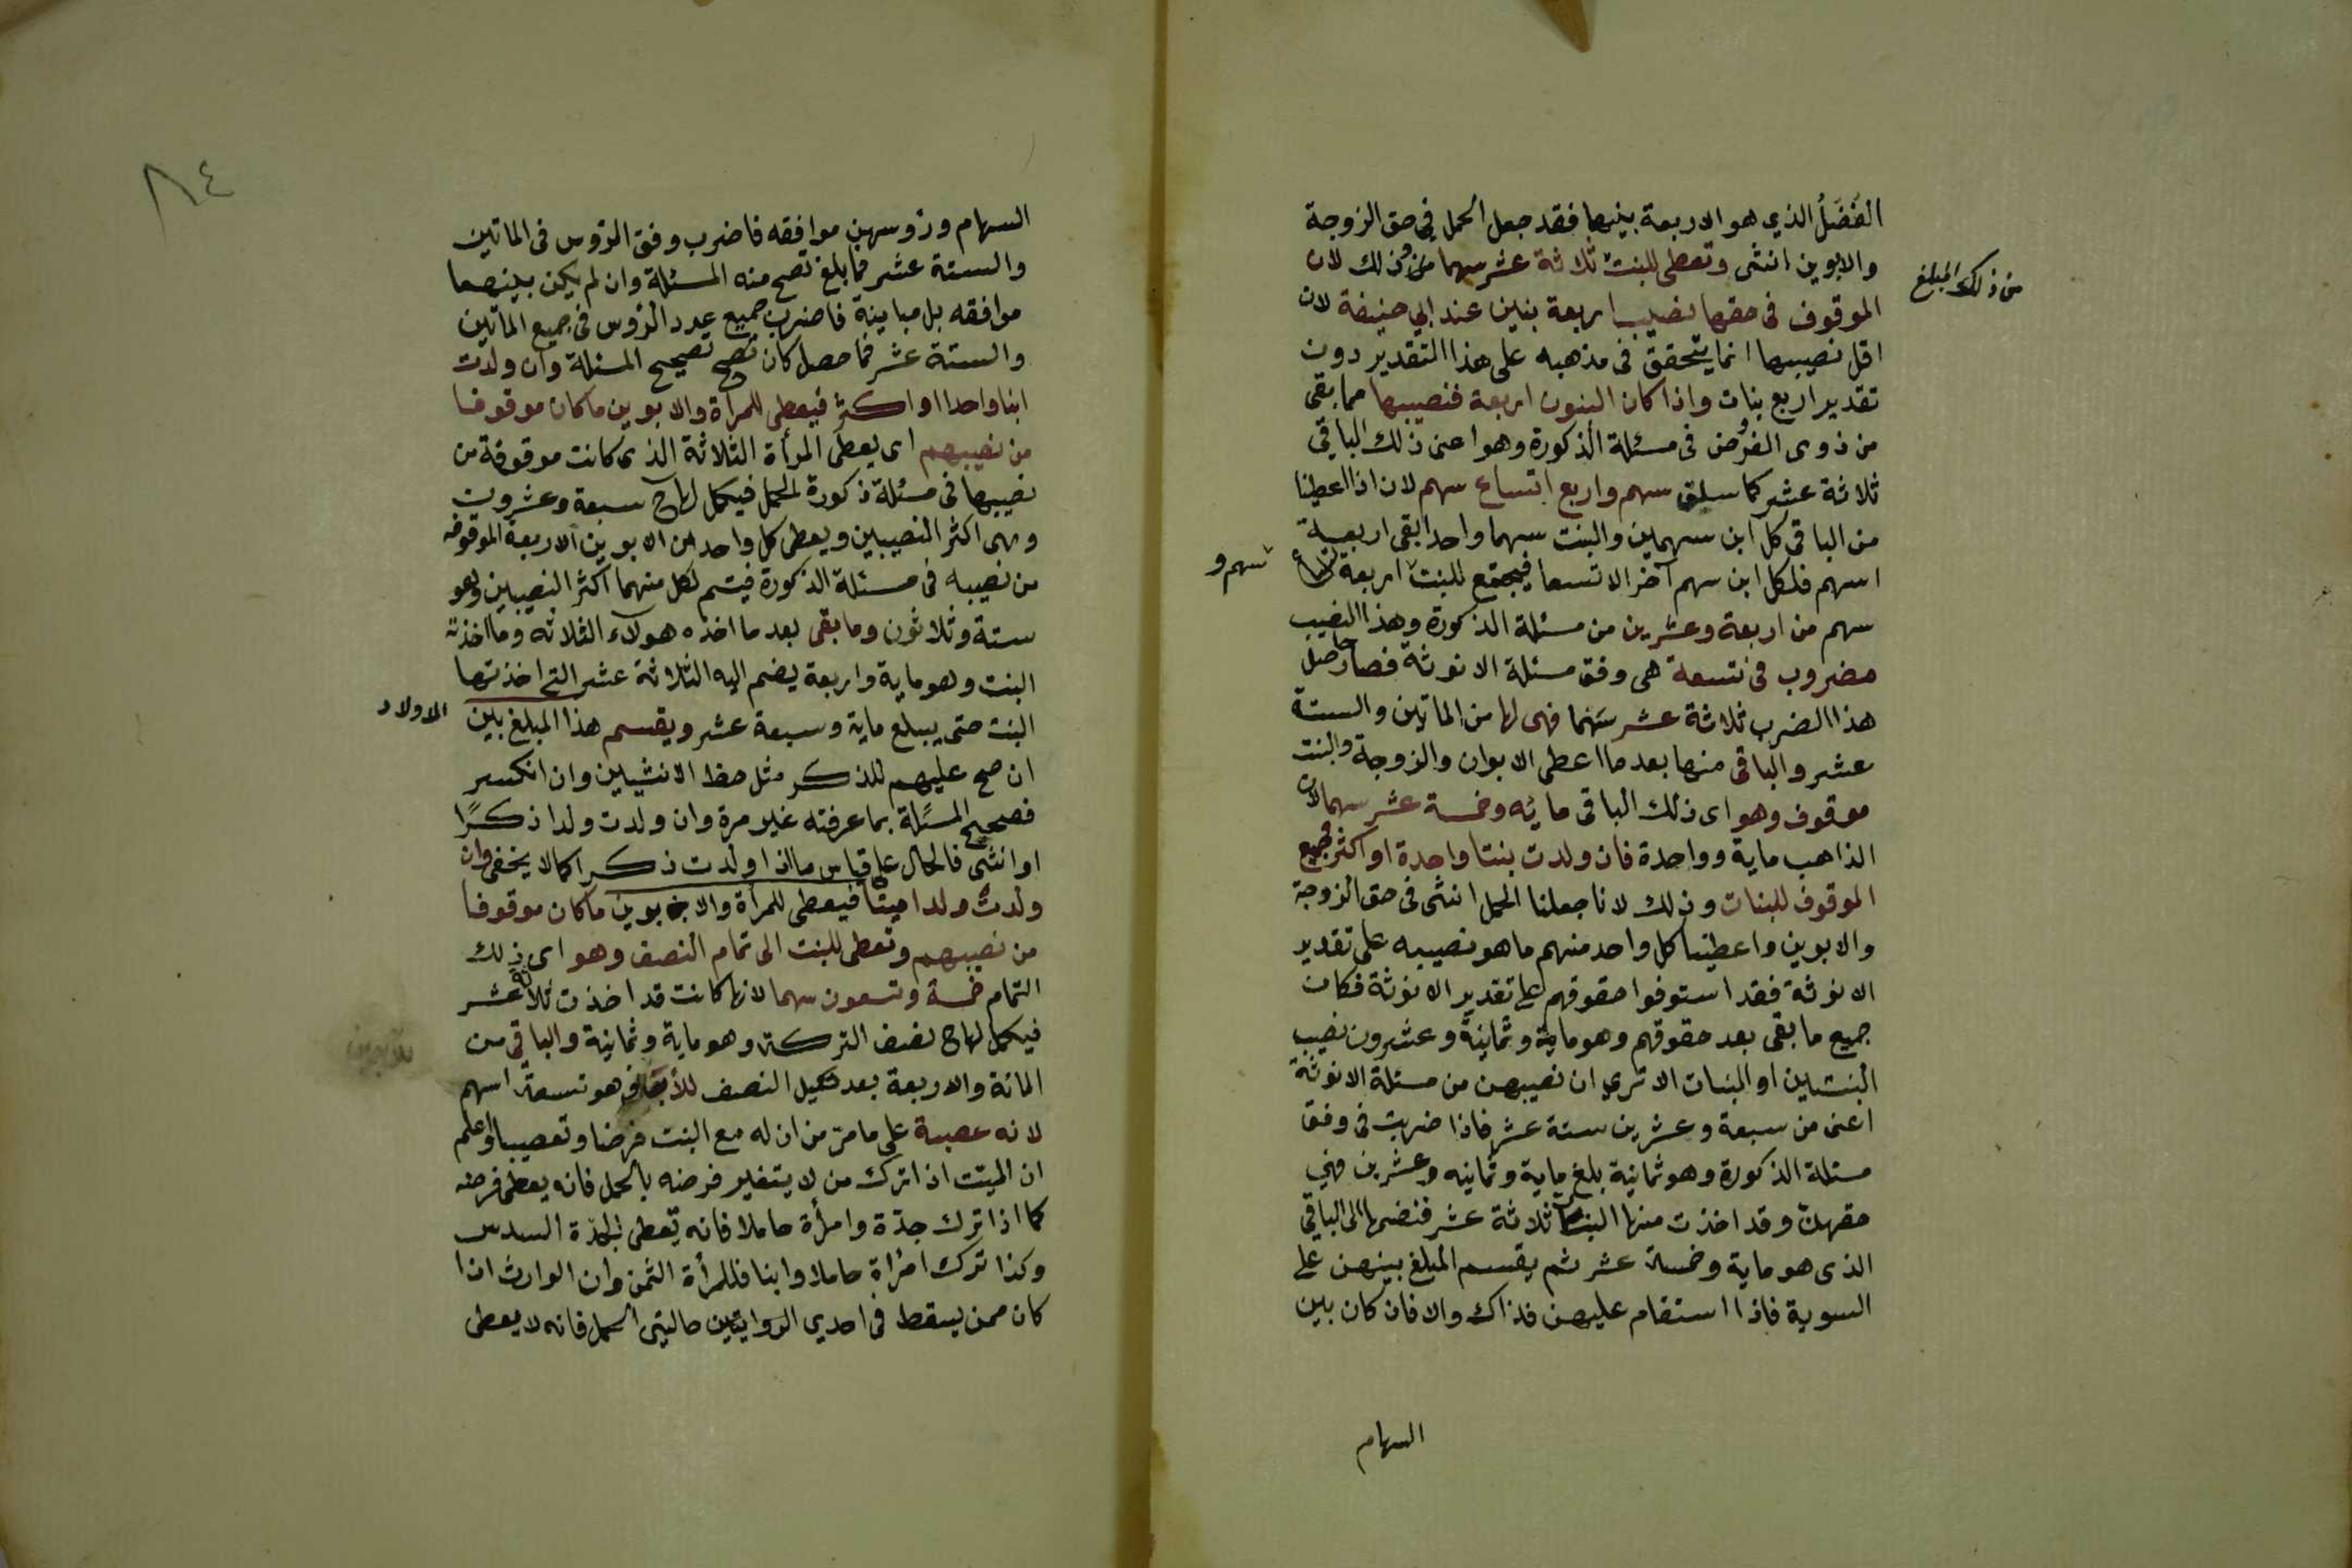 الفَضْلُ الذي هو الاربعة بينها فقد جعل الحمل في حق الزوجة
والابوين انثى وتعطى للبنت ثلاثة عشر سهما من ذلك لان
من ذلك المبلغ
الموقوف فى حقها نصيب اربعة بنين عند ابي حنيفة لان
اقل نصيبها انما يتحقق فى مذهبه على هذا التقدير دون
تقدير اربع بنات واذا كان البنون اربعة فنصيبها مما بقى
من ذوى الفروض فى مسئلة الذكورة وهو اعنى ذلك الباقي
ثلاثة عشر كما سلق سهم واربع اتساع سهم لان اذا اعطينا
من الباقى كل ابن سهمين والبنت سهما واحدا بقى اربعة
اسهم فلكل ابن سهم آخر الا تسعا فيجتمع للبنت اربعة اتساع
سهم و
سهم من اربعة وعشرين من مسئلة الذكورة وهذا النصيب
مضروب فى تسعة هى وفق مسئلة الانوثة فصار حاصل
هذا الضرب ثلاثة عشر سهما فهى لها من الماتين والستة
عشر والباقى منها بعد ما اعطى الابوان والزوجة والبنت
موقوف وهو اى ذلك الباقى مايه وخمسة عشر سهما لان
الذاهب ماية وواحدة فان ولدت بنتا واحدة او اكثر فجميع
الموقوف للبنات وذلك لانا جعلنا الحمل انثى فى حق الزوجة
والابوين واعطينا كل واحد منهم ما هو نصيبه على تقدير
الانوثة فقد استوفوا حقوقهم على تقدير الانوثة فكان
جميع ما بقى بعد حقوقهم وهو ماية وثمانية وعشرون نصيب
البنتين او البنات الا ترى ان نصيبهن من مسئلة الانوثة
اعنى من سبعة وعشرين ستة عشر فاذا ضربت فى وفق
مسئلة الذكورة وهو ثمانية بلغ ماية وثمانيه وعشرين فهي
حقهن وقد اخذت منها البنت ثلاثة عشر فنضمها الى الباقي
الذى هو ماية وخمسة عشر ثم يقسم المبلغ بينهن على
السوية فاذا استقام عليهن فذاك والا فان كان بين
السهام
٨٤
السهام ورؤسهن موافقه فاضرب وفق الرؤس فى الماتين
والستة عشر فما بلغ تصح منه المسئلة وان لم يكن بينهما
موافقه بل مباينة فاضرب جميع عدد الرؤس فى جميع الماتين
والستة عشر فما حصل كان تصحيح المسئلة وان ولدت
ابنا واحدا او اكثر فيعطى للمرأة والابوين ما كان موقوفا
من نصيبهم اى يعطى المرأة الثلاثة الذى كانت موقوفة من
نصيبها فى مسئلة ذكورة الحمل فيكمل لها ح سبعة وعشرون
وهى اكثر النصيبين ويعطى كل واحد من الابوين الاربعة الموقوفه
من نصيبه فى مسئلة الذكورة فيتم لكل منهما اكثر النصيبين وهو
ستة وثلاثون وما بقى بعد ما اخذه هولاء الثلاثه وما اخذته
البنت وهو ماية واربعة يضم اليه الثلاثة عشر التى اخذتها
البنت حتى يبلغ ماية وسبعة عشر ويقسم هذا المبلغ بين
الاولاد
ان صح عليهم للذكر مثل حظ الانثيين وان انكسر
فصحيح المسئلة بما عرفته غير مرة وان ولدت ولدا ذكرًا
او انثى فالحال على قياس ما اذا ولدت ذكرا كما لا يخفى وان
ولدت ولدا ميتا فيعطى للمرأة والابوين ما كان موقوفا
من نصيبهم وتعطى للبنت الى تمام النصف وهو اى ذلك
التمام خمسة وتسعون سهما لانها كانت قد اخذت ثلاثة عشر
فيكمل لها ح نصف التركة وهو ماية وثمانية والباقي من
المائة والاربعة بعد تكميل النصف للأب وهو تسعة اسهم
لانه عصبة على ما مرّ من ان له مع البنت فرضا وتعصيبا واعلم
ان الميت اذا ترك من لا يتغير فرضه بالحمل فانه يعطى فرضه
كما اذا ترك جدّة وامرأة حاملا فانه تعطى الجدّة السدس
وكذا ترك امرأة حاملا وابنا فللمرأة الثمن وان الوارث اذا
كان ممن يسقط فى احدي الروايتين حالتى الحمل فانه لا يعطى